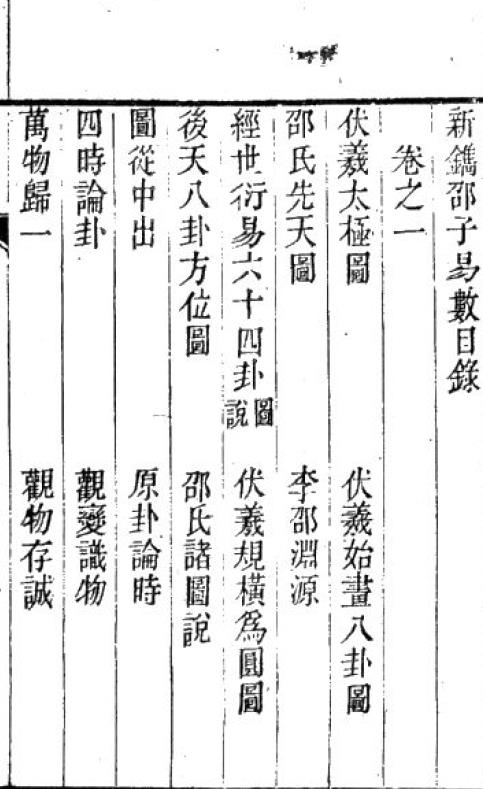 新鐫邵子易數目錄
卷之一
伏羲太極圖 伏羲始畫八卦圖
邵氏先天圖 李邵淵源
經世衍易六十四卦圖說 伏羲規橫為圓圖
後天八卦方位圖 邵氏諸圖說
圖從中出 原卦論時
四時論卦 觀變識物
萬物歸一 觀物存誠